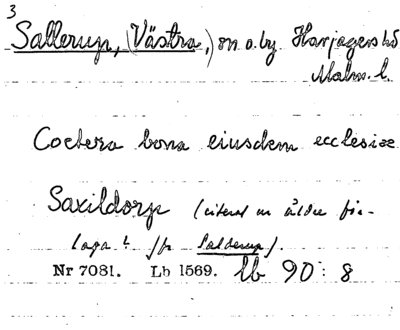 3
Sallerup, (Västra,) sn o. by. Harjagers hd
Malm. l.
Coetera bona eiusdem ecclesiae
Saxildorp (citerat ur äldre för-
laga? jfr Salderup).
Nr 7081. Lb 1569. lb 90: 8